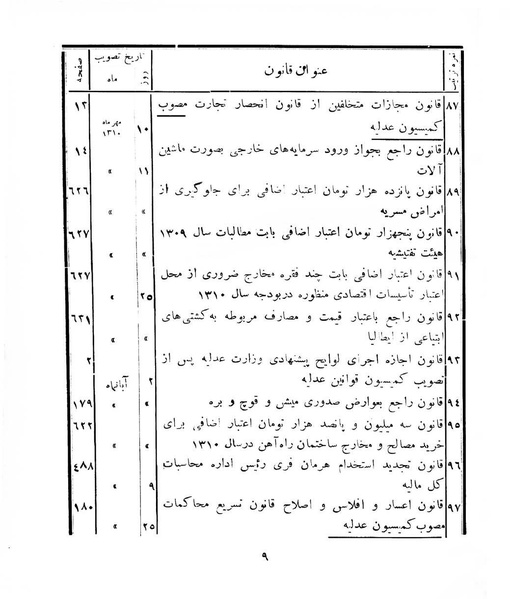 نمره ترتیب عنوان قانون تاریخ تصویب صفحه
روز ماه
۸۷ قانون مجازات متخلفین از قانون انحصار تجارت مصوب ۱۳
کمیسیون عدلیه ۱۰ مهرماه ۱۳۱۰
۸۸ قانون راجع بجواز ورود سرمایه‌های خارجی بصورت ماشین ۱۴
آلات ۱۱ »
۸۹ قانون پانزده هزار تومان اعتبار اضافی برای جلوگیری از ۶۲۶
امراض مسریه » »
۹۰ قانون پنجهزار تومان اعتبار اضافی بابت مطالبات سال ۱۳۰۹ ۶۲۷
هیئت تفتیشیه » »
۹۱ قانون اعتبار اضافی بابت چند فقره مخارج ضروری از محل ۶۲۷
اعتبار تأسیسات اقتصادی منظوره دربودجه سال ۱۳۱۰ ۲۵ »
۹۲ قانون راجع باعتبار قیمت و مصارف مربوطه به‌کشتی‌های ۶۳۱
ابتیاعی از ایطالیا » »
۹۳ قانون اجازه اجرای لوایح پیشنهادی وزارت عدلیه پس از ۲
تصویب کمیسیون قوانین عدلیه ۲ آبانماه
۹۴ قانون راجع بعوارض صدوری میش و قوچ و بره » » ۱۷۹
۹۵ قانون سه میلیون و پانصد هزار تومان اعتبار اضافی برای ۶۲۲
خرید مصالح و مخارج ساختمان راه‌آهن درسال ۱۳۱۰ » »
۹۶ قانون تجدید استخدام هرمان فری رئیس اداره محاسبات ۴۸۸
کل مالیه ۹ »
۹۷ قانون اعسار و افلاس و اصلاح قانون تسریع محاکمات ۱۸۰
مصوب کمیسیون عدلیه ۲۵ »
۹